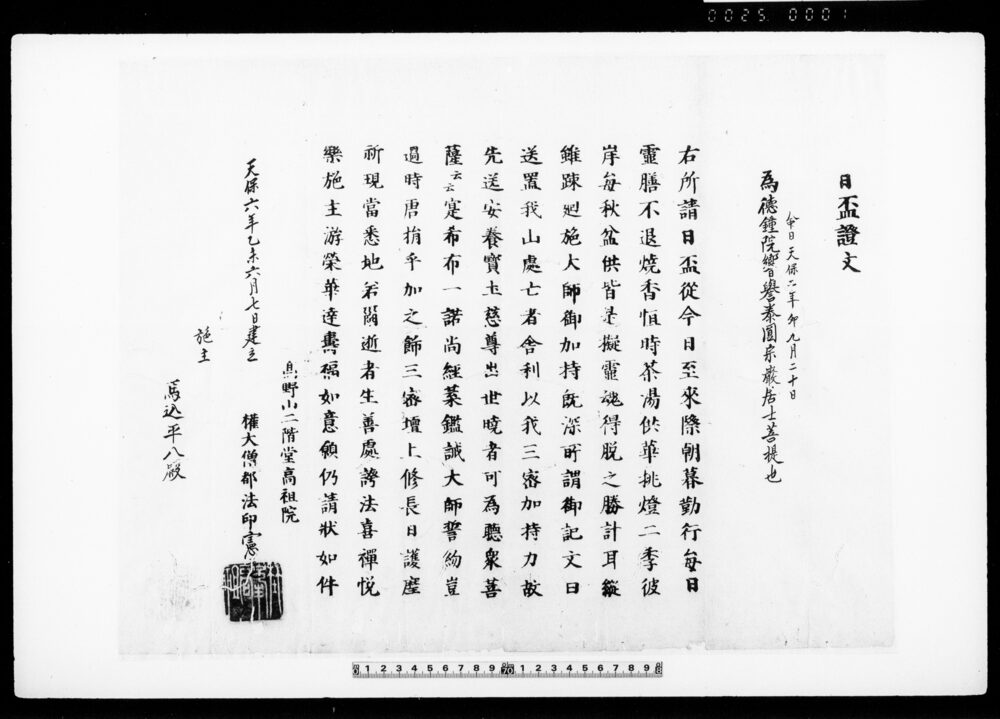 0025 0001
日盃證文
命日天保六年卯九月二十日
為德鐘院響譽泰圓宗嚴居士菩提也
右所請日盃從今日至來際朝暮勤行每日
靈膳不退燒香恒時茶湯供華挑燈二季彼
岸每秋盆供皆是擬靈魂得脱之勝計耳縱
雖踈廻施大師御加持既深所謂御記文曰
送置我山處亡者舍利以我三密加持力故
先送安養寶土慈尊出世曉者可為聽衆菩
薩云云寔希布一諾尚經葉鑑誠大師誓約豈
過時唐捐乎加之飾三密壇上修長日護摩
祈現當悉地若爾逝者生善處誇法喜禪悦
樂施主游榮華達壽福如意願仍請狀如件
高野山二階堂高祖院
天保六年乙未六月七日建立
權大僧都法印憲
施主
馬込平八殿
0 1 2 3 4 5 6 7 8 9 10 1 2 3 4 5 6 7 8 9